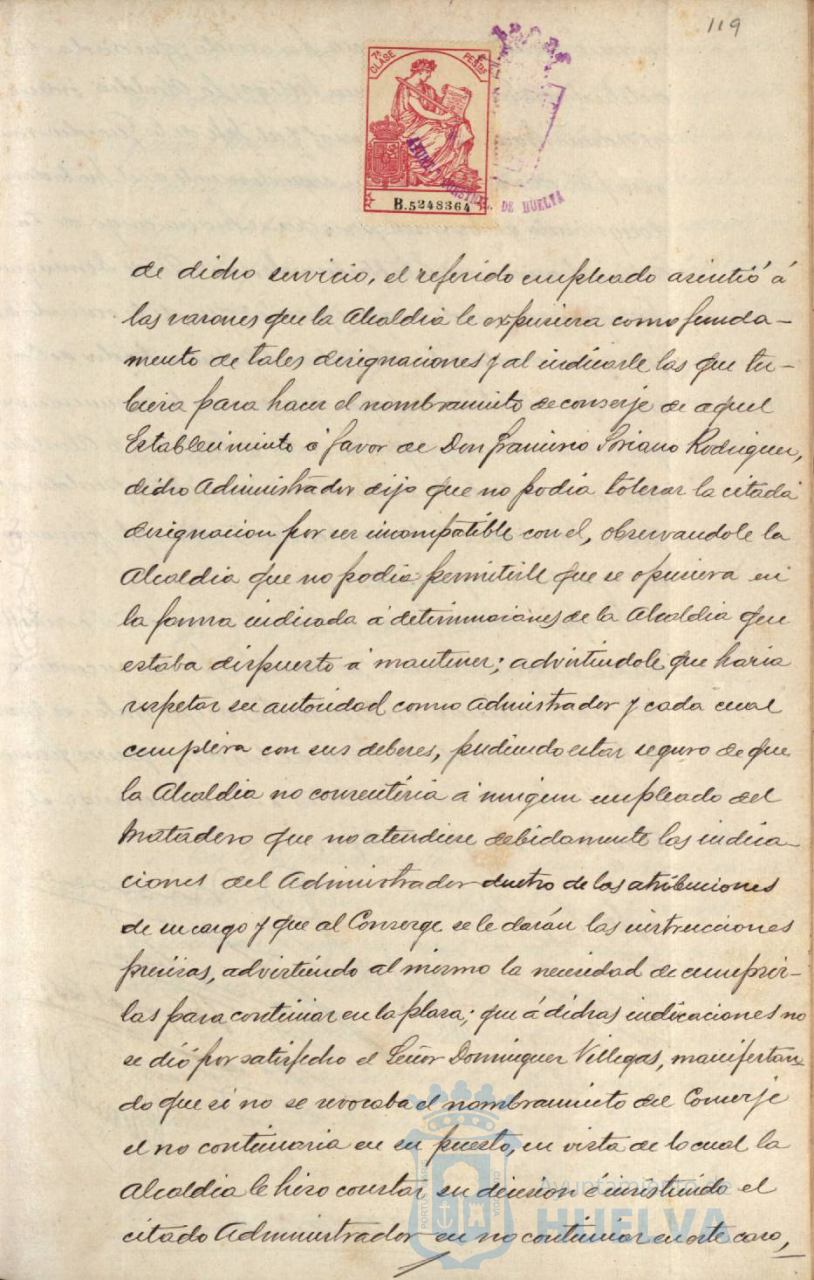 119
7ª CLASE PESETAS
B.5248364
AYUNTAMIENTO CONSTITUCL. DE HUELVA
de dicho servicio, el referido empleado asintió á
las razones que la Alcaldia le expusiera como funda-
mento de tales designaciones y al indicarle las que tu-
biera para hacer el nombramiento de conserje de aquel
Establecimiento á favor de Don Francisco Soriano Rodriguez,
dicho Administrador dijo que no podia tolerar la citada
designacion por ser incompatible con el, observandole la
Alcaldia que no podia permitirle que se opusiera en
la forma indicada á determinaciones de la Alcaldia que
estaba dispuesto á mantener; advirtiendole que haria
respetar su autoridad como Administrador y cada cual
cumpliera con sus deberes, pudiendo estar seguro de que
la Alcaldia no consentiria á ningun empleado del
Matadero que no atendiese debidamente las indica-
ciones del Administrador dentro de las atribuciones
de su cargo y que al Conserge se le darán las instrucciones
precisas, advirtiendo al mismo la necesidad de cumplir-
las para continuar en la plaza; que á dichas indicaciones no
se dió por satisfecho el Señor Dominguez Villegas, manifestan-
do que si no se revocaba el nombramiento del Conserje
el no continuaria en su puesto, en vista de lo cual la
Alcaldia le hizo constar su decision é insistiendo el
citado Administrador en no continuar en este caso,
Ayuntamiento de
HUELVA